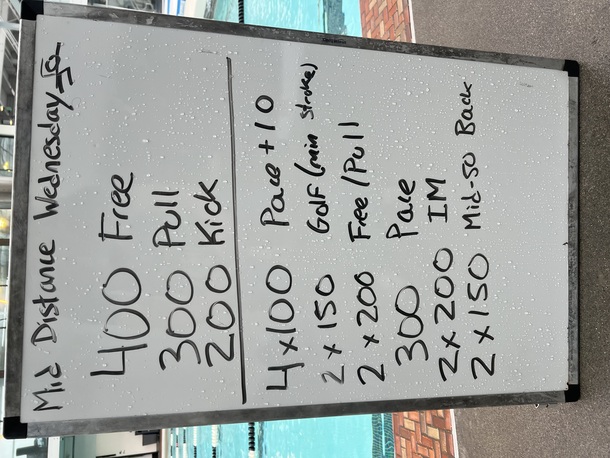 Mid Distance Wednesday
400 Free
300 Pull
200 Kick
4 x 100 Pace + 10
2 x 150 Golf (min stroke)
2 x 200 Free / Pull
300 Pace
2 x 200 IM
2 x 150 Mid-50 Back